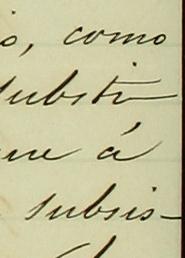 o, como
substi
ue á
subsis-